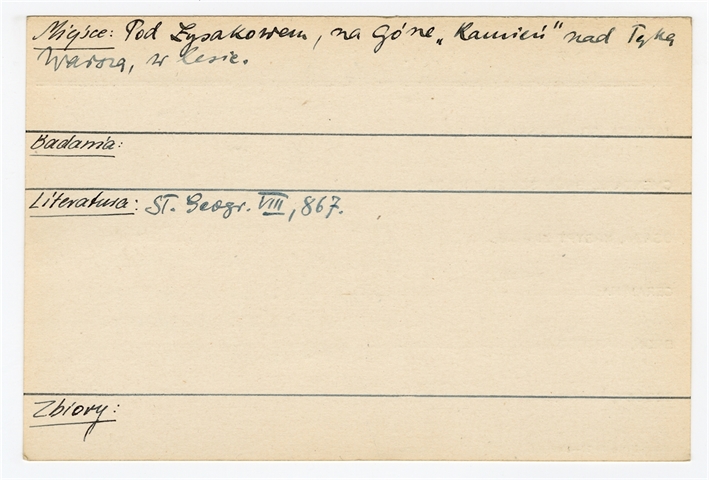 Miejsce: Pod Łysakowem, na Górze „Kamień" nad Tyką
Warszą, w lesie.
Badania:
Literatura: Sł. Geogr. VIII, 867.
Zbiory: